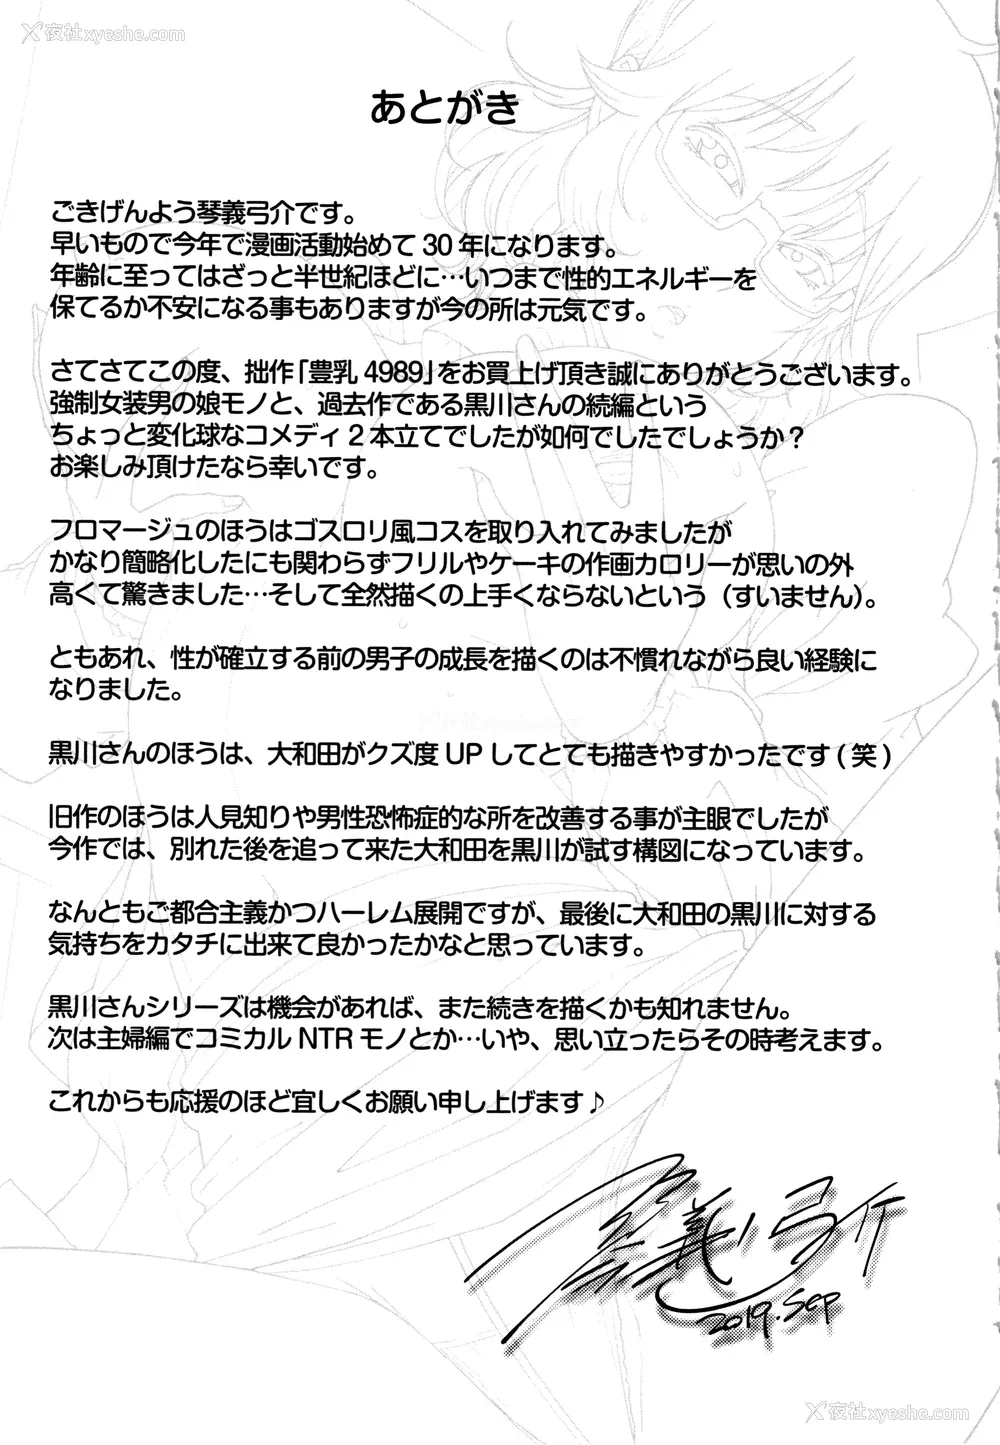 夜社xyeshe.com
あとがき
ごきげんよう琴義弓介です。
早いもので今年で漫画活動始めて 30 年になります。
年齢に至ってはざっと半世紀ほどに…いつまで性的エネルギーを
保てるか不安になる事もありますが今の所は元気です。
さてさてこの度、拙作「豊乳 4989」をお買上げ頂き誠にありがとうございます。
強制女装男の娘モノと、過去作である黒川さんの続編という
ちょっと変化球なコメディ 2 本立てでしたが如何でしたでしょうか？
お楽しみ頂けたなら幸いです。
フロマージュのほうはゴスロリ風コスを取り入れてみましたが
かなり簡略化したにも関わらずフリルやケーキの作画カロリーが思いの外
高くて驚きました…そして全然描くの上手くならないという（すいません）。
ともあれ、性が確立する前の男子の成長を描くのは不慣れながら良い経験に
なりました。
黒川さんのほうは、大和田がクズ度 UP してとても描きやすかったです ( 笑 )
旧作のほうは人見知りや男性恐怖症的な所を改善する事が主眼でしたが
今作では、別れた後を追って来た大和田を黒川が試す構図になっています。
なんともご都合主義かつハーレム展開ですが、最後に大和田の黒川に対する
気持ちをカタチに出来て良かったかなと思っています。
黒川さんシリーズは機会があれば、また続きを描くかも知れません。
次は主婦編でコミカル NTR モノとか…いや、思い立ったらその時考えます。
これからも応援のほど宜しくお願い申し上げます♪
琴義弓介
2019.Sep
夜社xyeshe.com